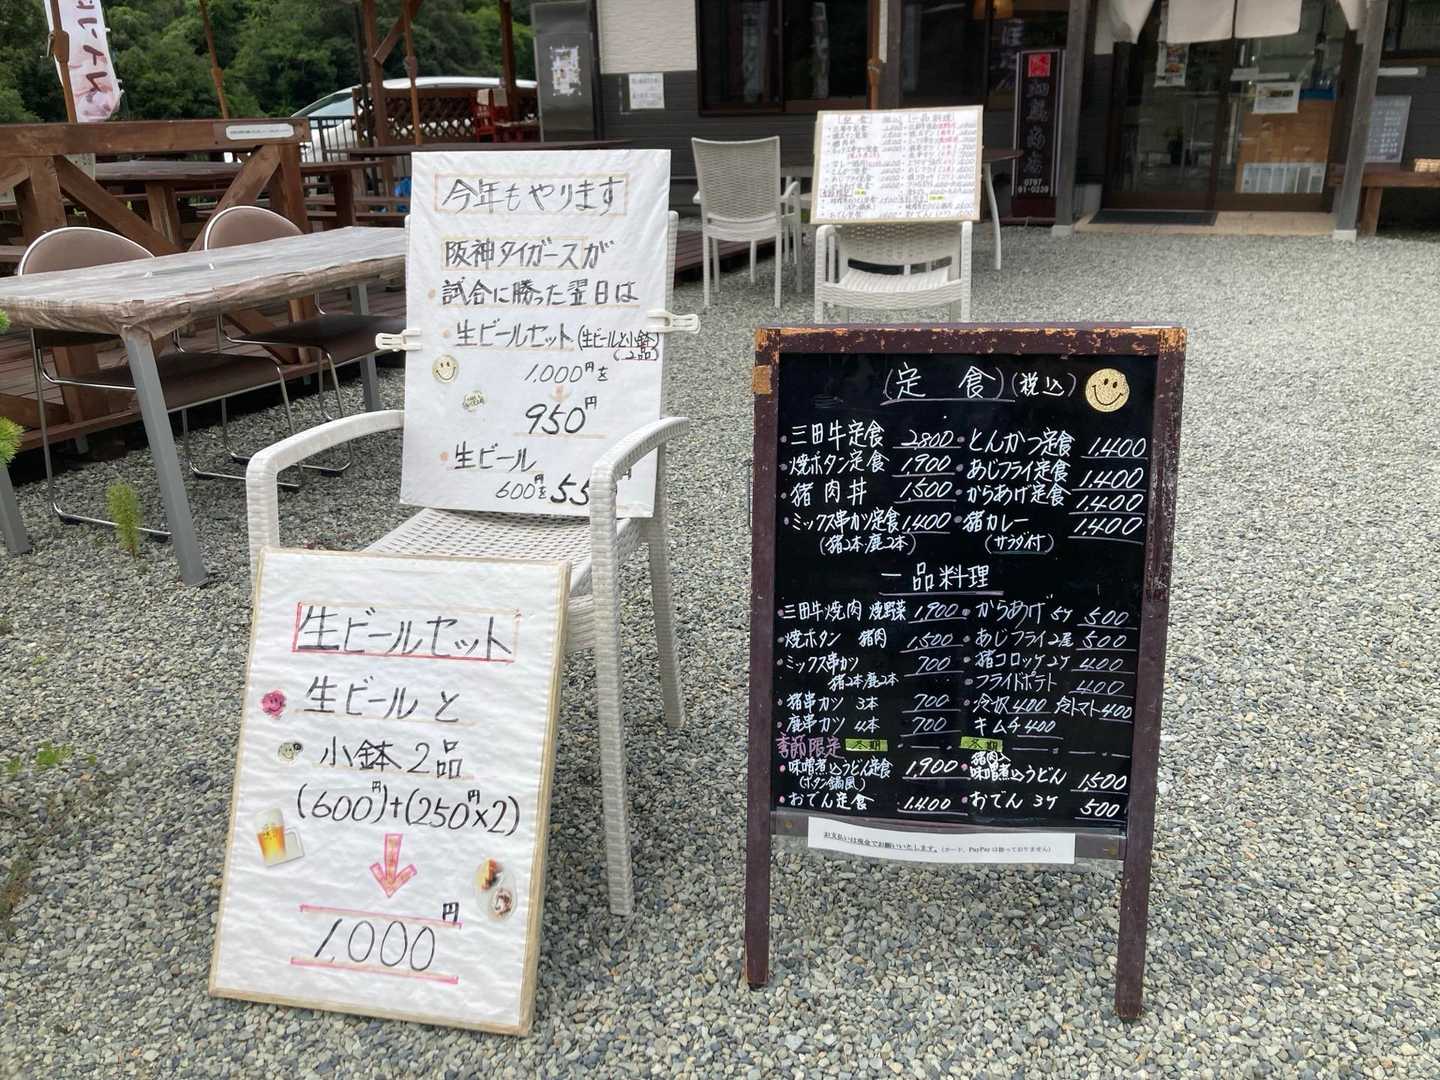 今年もやります
阪神タイガースが
試合に勝った翌日は
生ビールセット(生ビールと小鉢2品)
1,000円を
950円
生ビール
600円を55
生ビールセット
生ビールと
小鉢2品
(600円)+(250円×2)
1,000円
(定食)(税込)
三田牛定食 2800
焼ボタン定食 1,900
猪肉丼 1500
ミックス串カツ定食 1,400
(猪2本鹿2本)
とんかつ定食 1,400
あじフライ定食 1,400
からあげ定食 1,400
猪カレー 1,400
(サラダ付)
一品料理
三田牛焼肉 焼野菜 1,900
焼ボタン 猪肉 1,500
ミックス串カツ 700
猪2本鹿2本
猪串カツ 3本 700
鹿串カツ 4本 700
からあげ 5ケ 500
あじフライ2尾 500
猪コロッケ2ケ 400
フライドポテト 400
冷奴 400 冷トマト400
キムチ400
季節限定 冬期
味噌煮込うどん定食 1,900
(ボタン鍋風)
おでん定食 1,400
冬期
猪肉入
味噌煮込うどん 1,500
おでん 3ケ 500
お支払いは現金でお願いいたします。(カード、PayPayは扱っておりません)
0797
91-0239